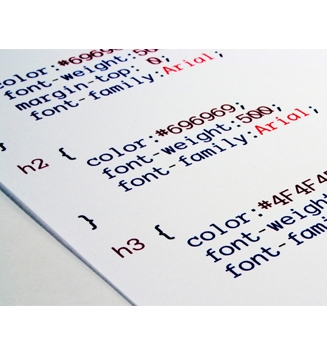 color:#6969
font-weight:50
margin-top: 0;
font-family:Arial;
}
h2 { color:#696969;
font-weight:500;
font-family:Arial;
}
h3 { color:#4F4F4
font-weight
font-fami